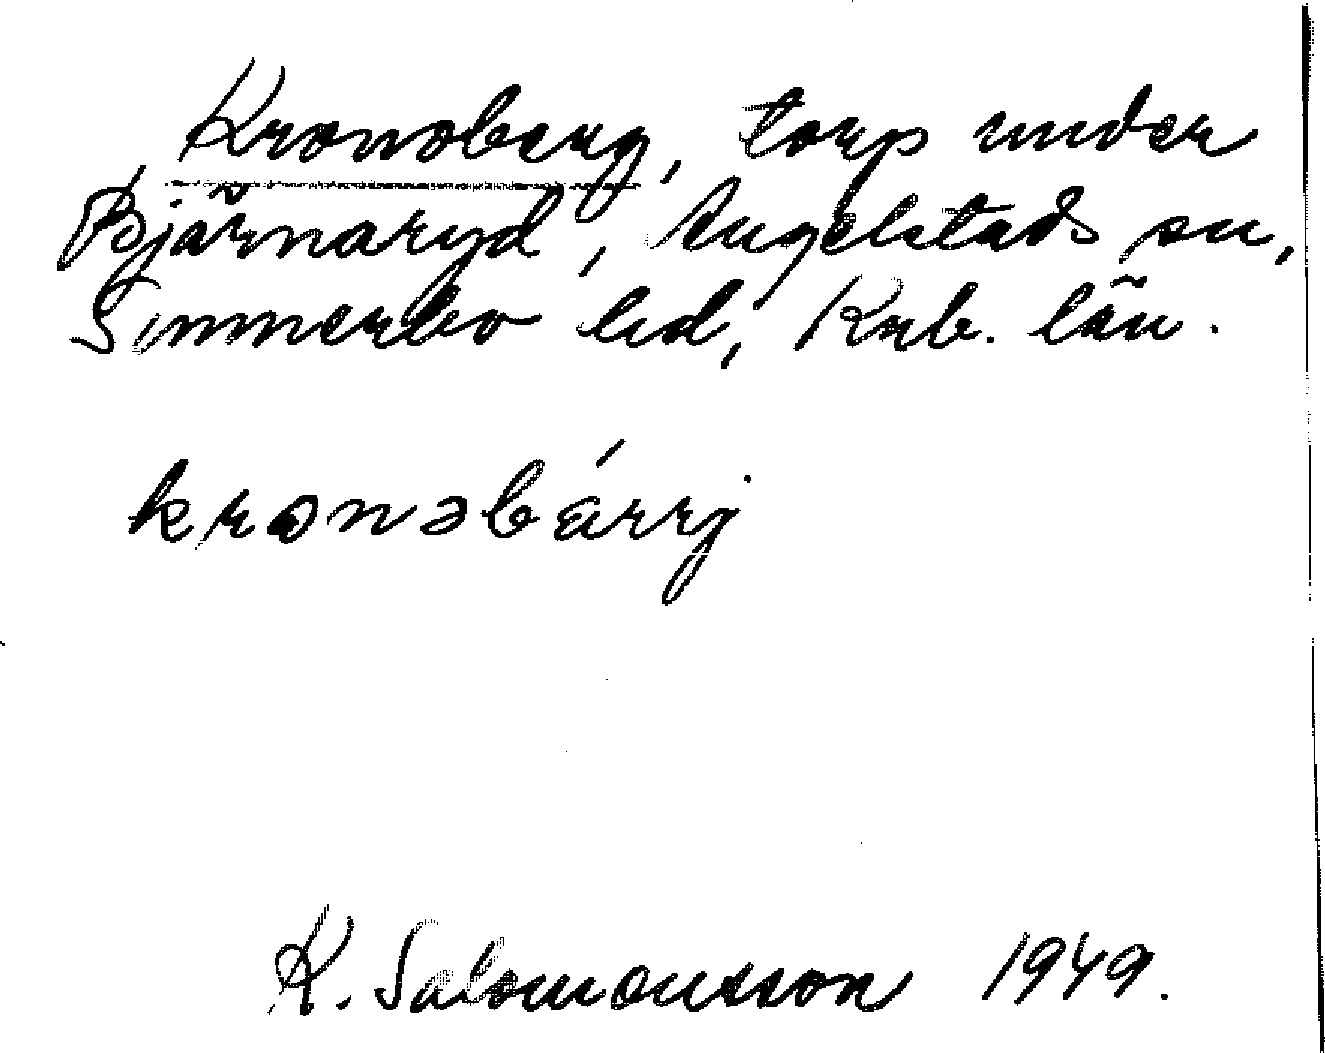 Kronoberg, torp under
Bjärnaryd, Angelstads sn,
Sunnerbo hd, Krb. län.
kronəbárrj
K. Salomonsson 1949.